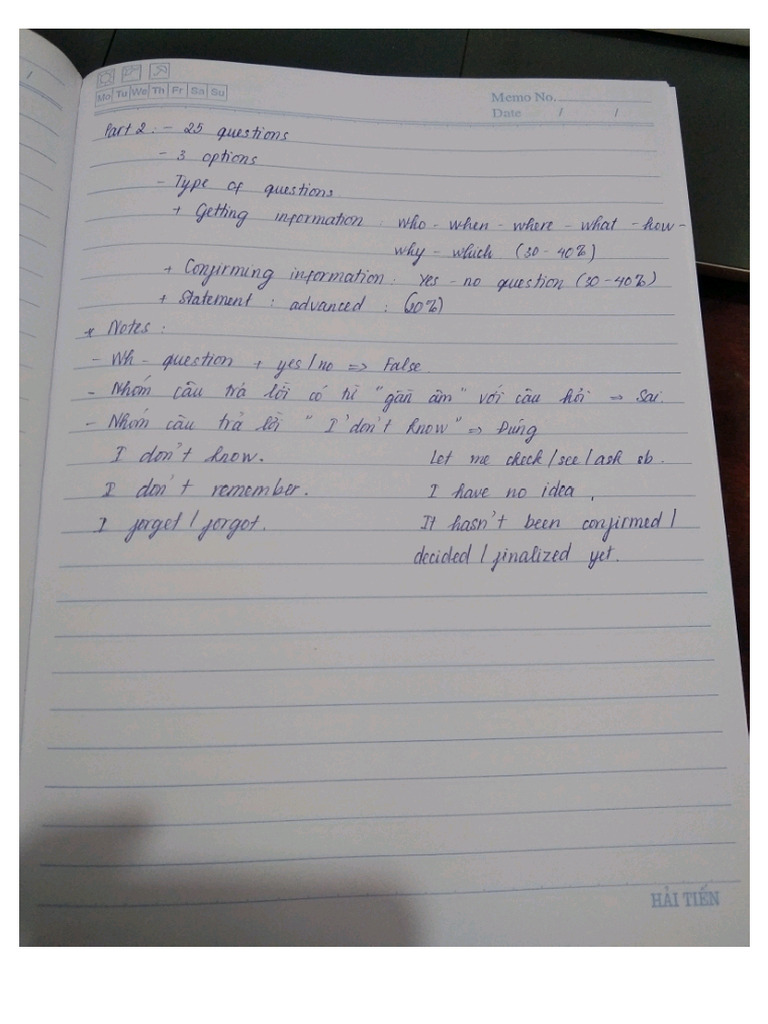 Mo Tu We Th Fr Sa Su
Memo No.
Date / /
Part 2 : - 25 questions
- 3 options
- Type of questions
+ Getting information : who - when - where - what - how -
why - which (30 - 40%)
+ Confirming information : Yes - no question (30 - 40%)
+ Statement : advanced : (20%)
* Notes :
- Wh - question + yes / no => False.
- Nhóm câu trả lời có từ "gần âm" với câu hỏi => Sai.
- Nhóm câu trả lời " I don't know " => Đúng
I don't know. Let me check / see / ask sb.
I don't remember. I have no idea.
I forget / forgot. It hasn't been confirmed /
decided / finalized yet.
HẢI TIẾN